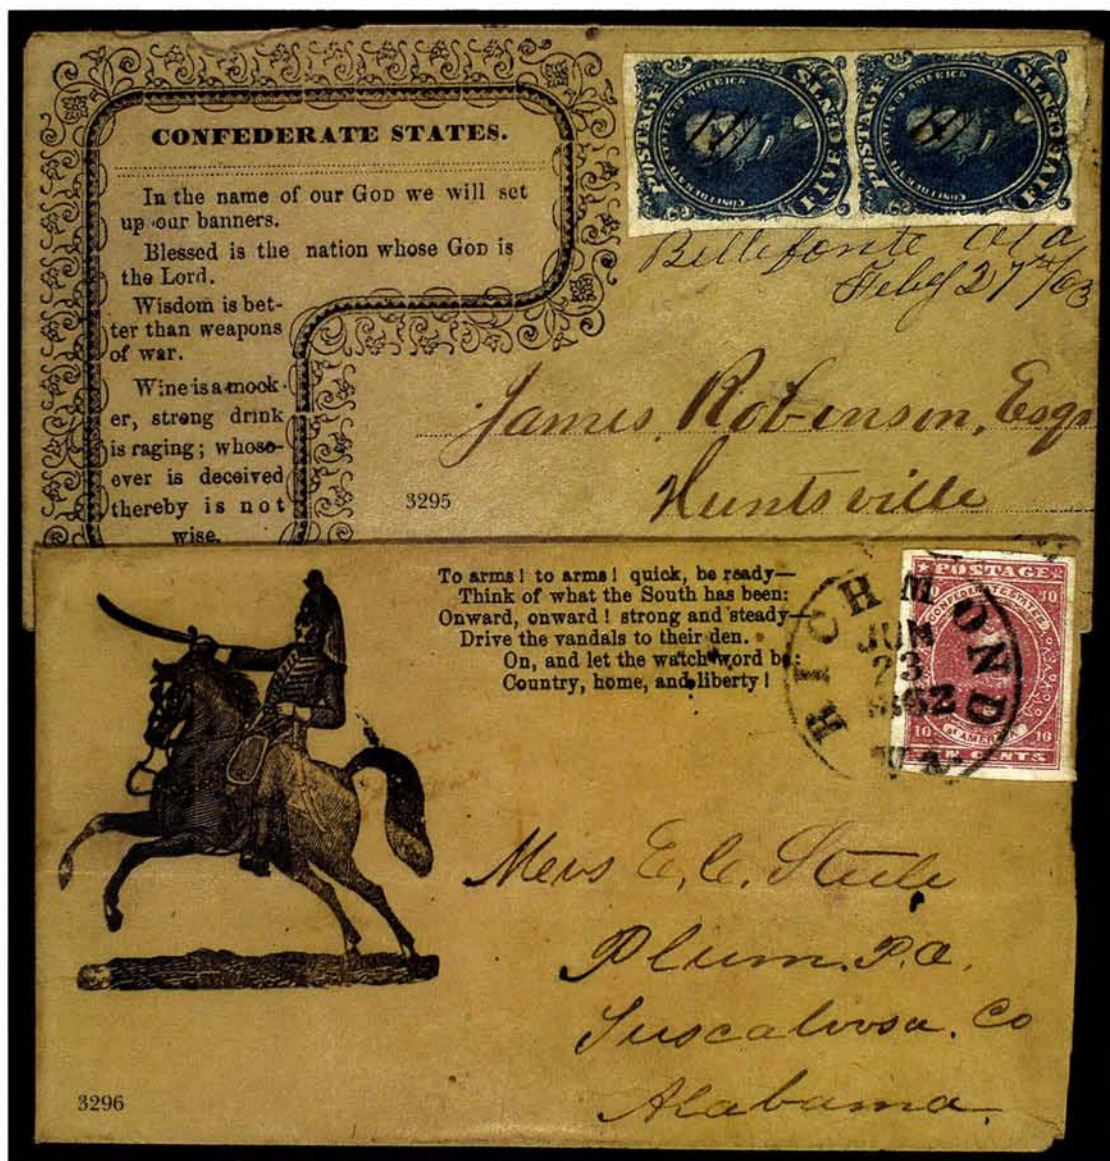 CONFEDERATE STATES.
In the name of our GOD we will set
up our banners.
Blessed is the nation whose GOD is
the Lord.
Wisdom is bet-
ter than weapons
of war.
Wine is a mock-
er, strong drink
is raging; whoso-
ever is deceived
thereby is not
wise.
POSTAGE
CONFEDERATE STATES OF AMERICA
FIVE CENTS
POSTAGE
CONFEDERATE STATES OF AMERICA
FIVE CENTS
Bellefonte Ala
Feby 27th/63
James Robinson, Esqr
Huntsville
3295
To arms! to arms! quick, be ready—
Think of what the South has been:
Onward, onward! strong and steady—
Drive the vandals to their den.
On, and let the watchword be:
Country, home, and liberty!
RICHMOND
JUN
23
1862
Va.
POSTAGE
10 10
CONFEDERATE STATES
OF AMERICA
10 10
CENTS
E. C. Steele
Plum. P.O.
Tuscaloosa. Co
Alabama.
3296